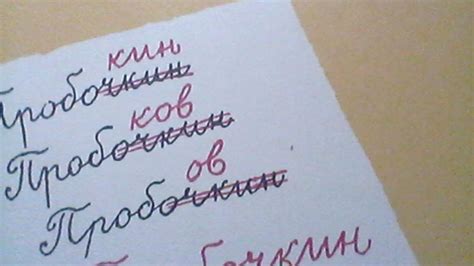 кин
Пробочкин
ков
Пробочкин
ов
Пробочкин
Пробочкин